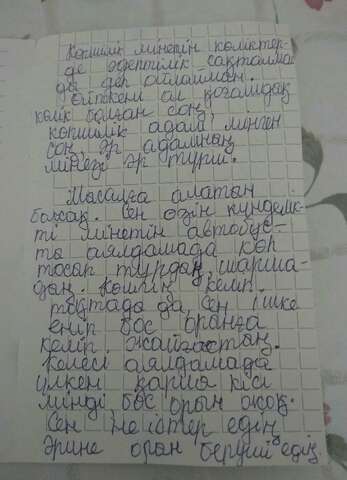 Көпшілік мінетін көліктер-
де әдептілік сақталма
ды деп айлаймын.
Өйткені ол қоғамдық
көлік болған соң,
көпшілік адам мінген
соң, әр адамның
мінезі әр түрлі.
Мысалға алатын
болсақ. Сен өзің күнделік-
ті мінетін автобус-
та аялдамада көп
тосап тұрдаң, шарша-
дың. Көлігің келіп
тоқтада да, сен ішке
еніп бос орынға
келіп жайғастың.
Келесі аялдамада
үлкен қария кісі
мінді бос орын жоқ.
Сен не істер едің
Әрине орын беруші едің